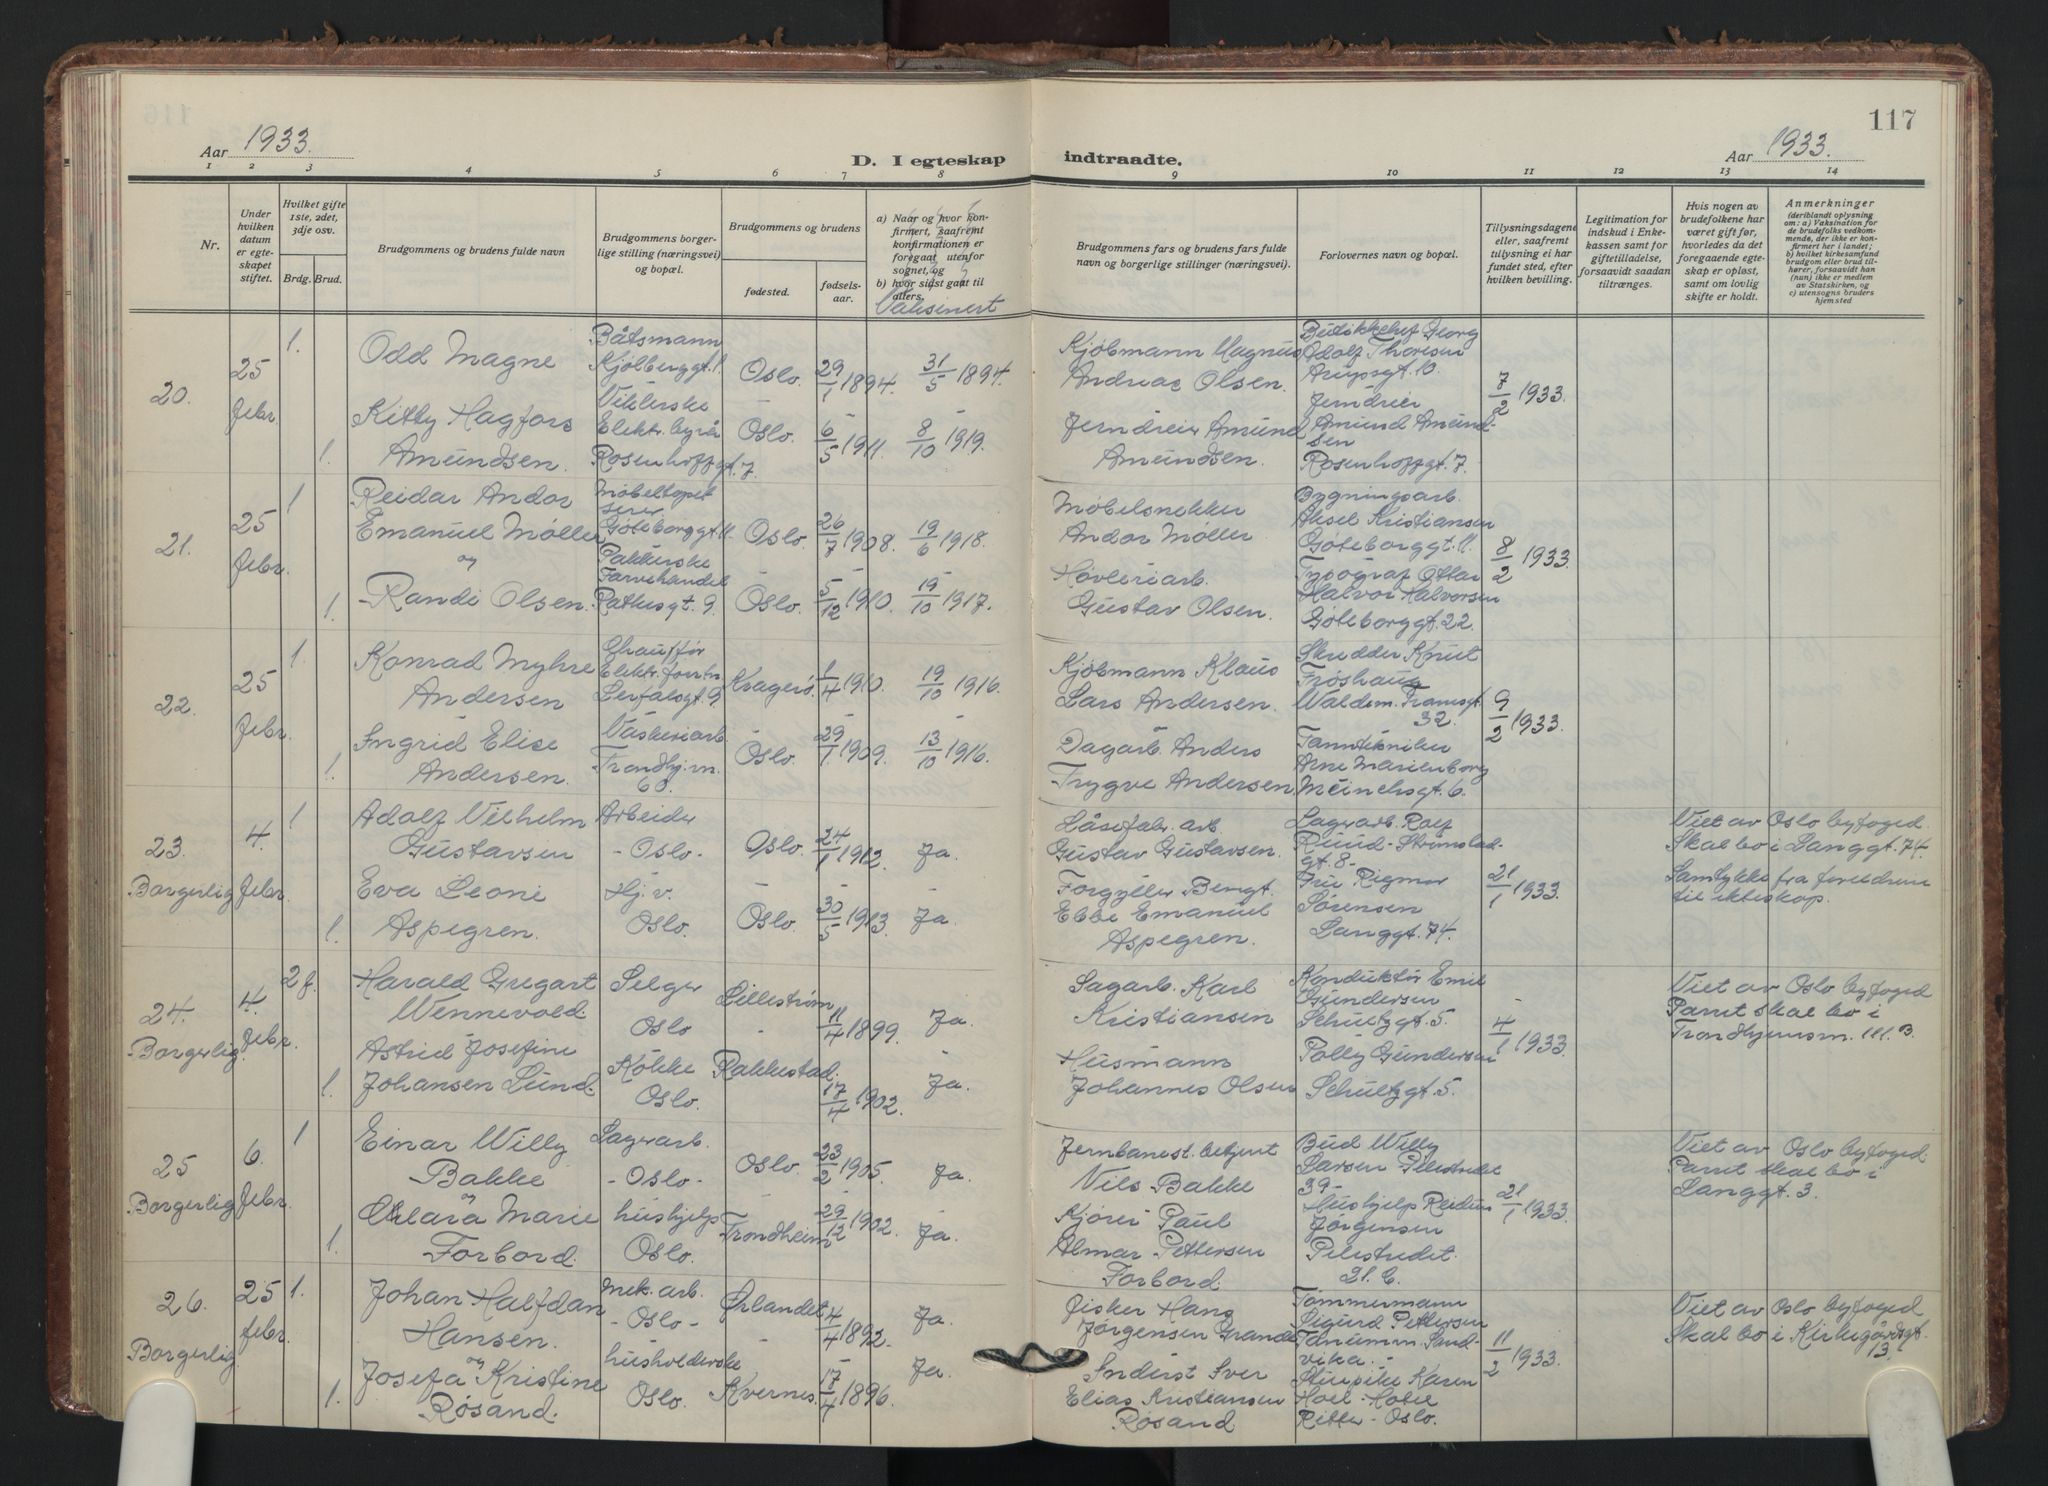 117
Aar 1933.
D. I egteskap
indtraadte.
Aar 1933.
1 2 3 4 5 6 7 8 9 10 11 12 13 14
Nr.
Under hvilken datum er egteskapet stiftet.
Hvilket gifte 1ste, 2det, 3dje osv.
Brdg. Brud.
Brudgommens og brudens fulde navn
Brudgommens borgerlige stilling (næringsvei) og bopæl.
Brudgommens og brudens
fødested.
fødselsaar.
a) Naar og hvor konfirmert, saafremt konfirmationen er foregaat utenfor sognet, og
b) hvor sidst gaat til alters.
Vaksinert
Brudgommens fars og brudens fars fulde navn og borgerlige stillinger (næringsvei).
Forlovernes navn og bopæl.
Tillysningsdagene eller, saafremt tillysning ei har fundet sted, efter hvilken bevilling.
Legitimation for indskud i Enkekassen samt for giftetilladelse, forsaavidt saadan tiltrænges.
Hvis nogen av brudefolkene har været gift før, hvorledes da det foregaaende egteskap er opløst, samt om lovlig skifte er holdt.
Anmerkninger
(deriblandt oplysning om: a) Vaksination for de brudefolks vedkommende, der ikke er konfirmert her i landet; b) hvilket kirkesamfund brudgom eller brud tilhører, forsaavidt han (hun) ikke er medlem av Statskirken, og c) utensogns bruders hjemsted
20.
25 febr.
1.
Odd Magne
Båtsmann
Kjölberggt. 1.
Oslo. 29/1 1894. 31/5 1894.
Kjøbmann Magnus
Andreas Olsen.
Georg
Adolf Thoresen
Arupsgt. 10.
7/2 1933.
1.
Kitty Hagfors
Amundsen.
Elektr. byrå
Rosenhoffgt. 7
Oslo. 6/5 1911. 8/10 1919.
Jerndreier Amund
Amundsen.
Jerndreier
Amund Amundsen
Rosenhoffgt. 7.
21.
25 febr.
1
Reidar Andor
Emanuel Møller
og
Møbeltapetserer
Göteborggt. 11.
Oslo. 26/7 1908. 19/6 1918.
Møbelsnekker
Andor Møller
Bygningsarb.
Aksel Kristiansen
Göteborggt. 11.
8/2 1933.
1.
Randi Olsen.
Pakkerske
Farvehandel
Rathusgt. 9.
Oslo. 5/12 1910. 19/10 1917.
Høvleriarb.
Gustav Olsen.
Typograf Ottar
Halvor Halvorsen
Göteborggt. 22.
22.
25 febr.
1.
Konrad Myhre
Andersen
Chauffør
Elektr. forr.
Lerfalsgt. 9
Kragerø. 1/4 1910. 19/10 1916.
Kjøbmann Klaus
Lars Andersen.
Skredder Knut
Frøshaug
Waldem. Tranesgt.
32.
9/2 1933.
1.
Ingrid Elise
Andersen.
Vaskeriarb.
Trondhj.vn.
60.
Oslo. 29/1 1909. 13/10 1916.
Dagarb. Anders
Trygve Andersen
Tanntekniker
Arne Marienborg
Munchsgt. 6.
23.
Borgerlig
4. febr.
1
Adolf Vilhelm
Gustavsen
Arbeider
- Oslo -
Oslo. 24/1 1912. Ja.
Låsefabr. arb.
Gustav Gustavsen.
Lagerarb. Rolf
Ruud - Strömstadgt. 8 -
21/1 1933.
Viet av Oslo byfoged.
Skal bo i Langgt. 74.
Samtykke fra foreldrene
til ekteskap.
1.
Eva Leoni
Aspegren.
Hj. v.
Oslo.
Oslo. 30/5 1913. Ja.
Forgyller Bengt.
Ebbe Emanuel
Aspegren.
Fru Rigmor
Sørensen
Langgt. 74.
24.
Borgerlig.
4. febr.
2 f.
Harald Gregart
Wennevold.
Selger
Oslo
Lillestrøm 11/4 1899. Ja.
Sagarb. Karl
Kristiansen
Konduktør Emil
Gundersen
Schultzgt. 5.
4/1 1933.
Viet av Oslo byfoged
Paret skal bo i
Trondhjemsvn. 111.B
1.
Astrid Josefine
Johansen Lund.
Kokke
Oslo.
Rakkestad. 17/4 1902. Ja.
Husmann
Johannes Olsen
Polly Gundersen
Schultzgt. 5.
25
Borgerlig
6. febr.
1
Einar Willy
Bakke
og
Lagerarb.
- Oslo -
Oslo. 23/2 1905. Ja.
Jernbanest. betjent
Nils Bakke
Bud Willy
Larsen Pilestredet
39 -
21/1 1933.
Viet av Oslo byfoged
Paret skal bo i
Langgt. 3.
1.
Clara Marie
Forbord.
hushjelp
Oslo.
Trondheim 29/12 1902. Ja.
Kjører Paul
Almar Pettersen
Forbord.
Hushjelp Reidun
Jørgensen
Pilestredet.
21. C.
26.
Borgerlig.
25 febr.
1.
Johan Halfdan
Hansen.
og
Mek. arb.
- Oslo -
Ørlandet 4/4 1892. Ja.
Fisker Hans
Jørgensen Grande
Tømmermann
Sigurd Pettersen
Sandvika. -
11/2 1933.
Viet av Oslo byfoged
Skal bo i Kirkegårdsgt.
13.
1.
Josefa Kristine
Røsand.
husholderske
Oslo.
Kvernes. 17/4 1896. Ja.
Inderst Iver
Elias Kristiansen
Røsand.
Stuepike Karen
Hoel - Hotel
Ritter - Oslo.